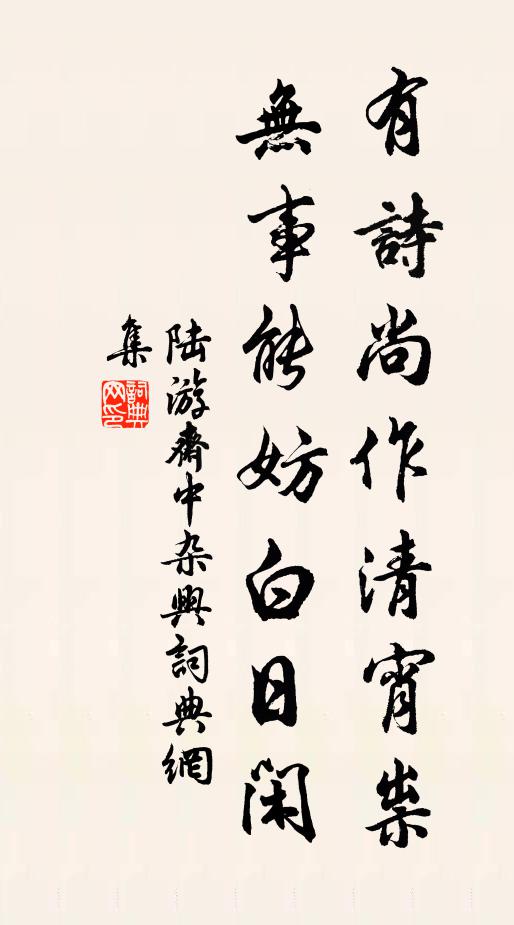 有詩尚作清宵祟
無事能妨白日閑
陆游齋中杂興詞典網
集
詞典网印